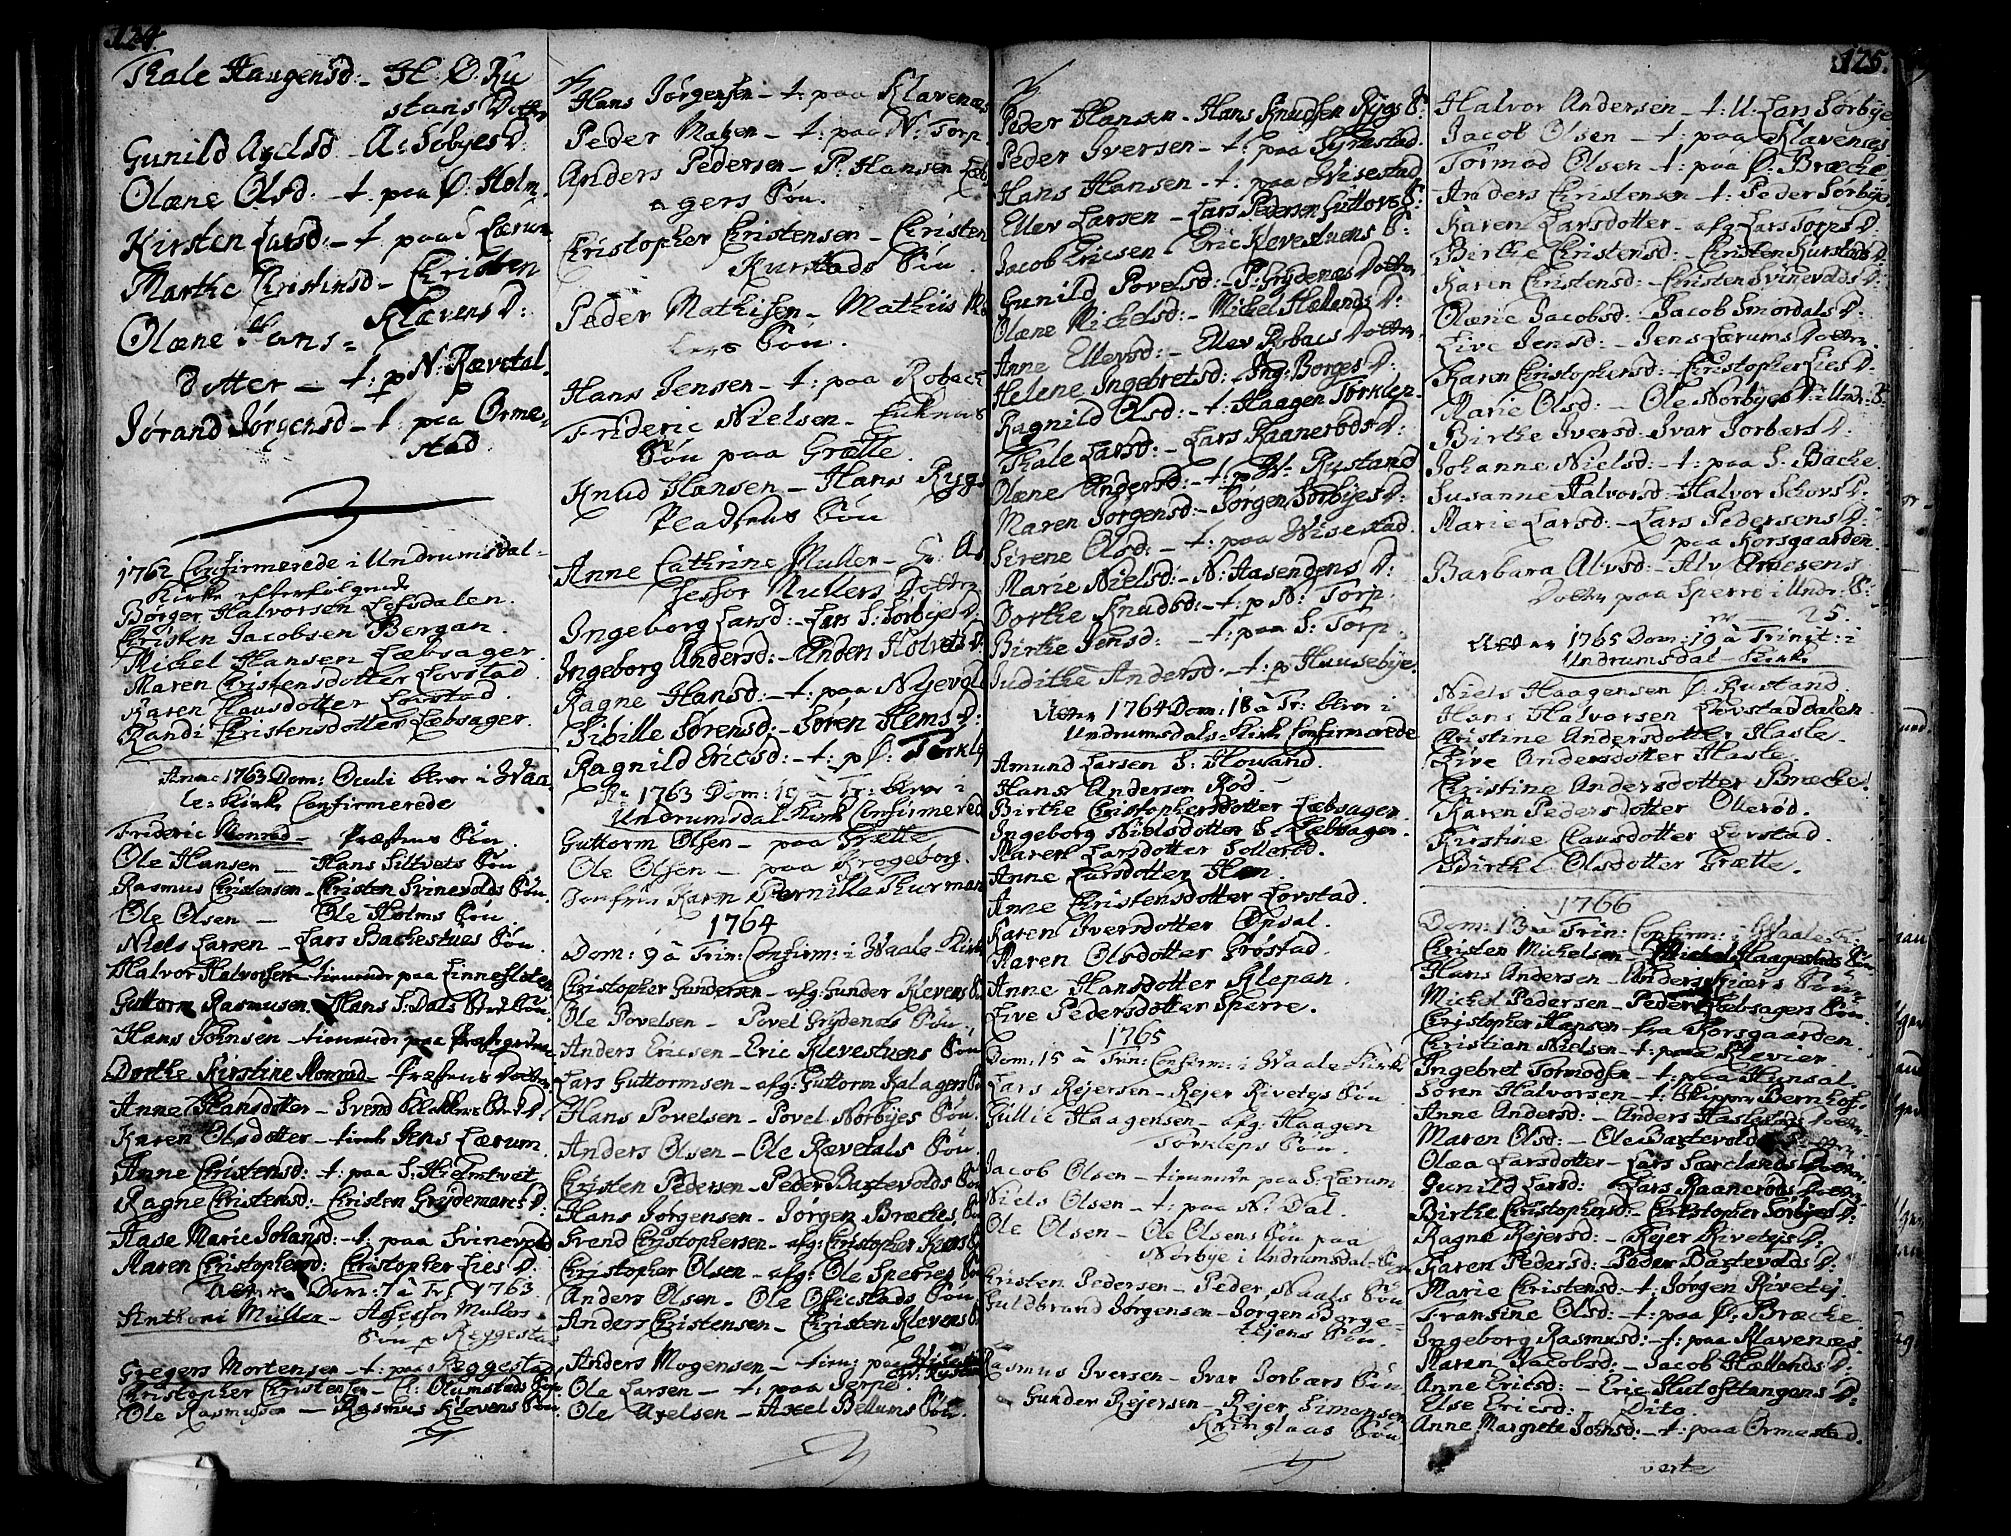 124.
Thale Haugensd: - H. Ø. Ru
stans Dotter
Gunild Axelsd - A: Søbyes D:
Olæne Olsd: - t: paa Ø. Holm
Kirsten Larsd: - t: paa S Lærum
Marthe Christensd - Christen
Klævens D:
Olæne Hans=
dotter - t: p N: Rævetal.
Jørand Jørgensd - t: paa Orme=
stad
1762 Confirmerede i Undrumsdal=
Kirke efterfølgende
Børger Halvorsen Lofsdalen.
Christen Jacobsen Bergan.
Michel Hansen Læbsager.
Maren Christensdotter Lovstad.
Karen Hansdotter Lovstad.
Randi Christensdotter Læbsager.
Anno 1763 Dom: Oculi blev i Waa
le=Kirke Confirmerede
Frideric Monrad - Præstens Søn.
Ole Hansen - Hans Siltvets Søn
Rasmus Christensen - Christen Svinevolds Søn.
Ole Olsen - Ole Holms Søn.
Niels Larsen - Lars Bachestues Søn.
Halvor Halvorsen - tienende paa Linneflaten
Guttorm Rasmusen - Hans S: Dals Søn.
Hans Johnsen - tienende paa
Dorthe Kirstine Monrad - Præstens Dotter
Anne Hansdotter - Svend D:
Karen Olsdotter - tien: Jens Lærum
Anne Christensd: - t: paa S: Hielmtvet
Ragne Christensd: Christen Grydemares D.
Aase Marie Johansd: - t: paa Svinevold
Maren Christophersd: Christopher Lies D:
Dom: 7 à Tr: 1763.
Anthoni Müller - Assessor Mullers
Søn p Reggestad
Gregers Mortensen - t: paa Reggestad
Christopher Christensen - C: Olumstads Søn
Ole Rasmusen - Rasmus Klevens Søn
Hans Jørgensen - t: paa Klavenæs
Peder Madsen - t: paa N: Torp
Anders Pedersen - P: Hansen Læb
agers Søn.
Christopher Christensen - Christen
Rustads Søn.
Peder Mathisen - Mathiis
Søn.
Hans Jensen - t: paa Robach
Frideric Nielsen - Enkens
Søn paa Grætte.
Knud Hansen - Hans Rygs
Pladsens Søn
Anne Cathrine Muller - Hr: As
sessor Mullers Dotter
Ingeborg Larsd: - Lars S: Sørbyes D:
Ingeborg Andersd: - Anders Holtvets D:
Ragne Hansd: - t: paa Nyevold
Sibille Sørensd: - Søren Hems D:
Ragnild Ericsd: - t: p Ø: Tørklep
Ao: 1763 Dom: 19 à Tr: blev i
Undrumsdal Kirke Confirmerede
Guttorm Olsen - paa Grætte
Ole Olsen - paa Brogeborg.
Jomfru Karen Pernille Thurman
1764
Dom: 9 à Trin: Confirm: i Waale Kirke
Christopher Gundersen - afg: Gunder Klevens S:
Ole Povelsen - Povel Grydenæs Søn.
Anders Ericsen - Eric Klevestuens Søn
Lars Guttormsen - afg: Guttorm Kalagers S:
Hans Povelsen - Povel Norbyes Søn.
Anders Olsen - Ole Rævetals Søn.
Christen Pedersen - Peder Baxtevolds Søn
Hans Jørgensen - Jørgen Bræches Søn
Svend Christophersen - afg: Christopher
Christopher Olsen - afg: Ole Sperres Søn
Anders Olsen - Ole Søn
Anders Christensen - Christen Klevens S:
Anders Mogensen - tien: paa W: Rustan
Ole Larsen - t: paa Jerpe
Ole Axelsen - Axel Bellums Søn
125.
Peder Hansen - Hans Knudsen Rygs S:
Peder Iversen - t: paa Syrestad.
Hans Hansen - t: paa Wisestad
Ellev Larsen - Lars Pedersen Guttors S:
Jacob Ericsen Eric Klevestuens S:
Gunild Povelsd: - P: Grydenæs Dotter
Olæne Michelsd: - Michel Hællands D:
Anne Ellevsd: - Ellev Robacs Dotter
Helene Ingebretsd: - Ing: Borges D:
Ragnild Olsd: - t: Haagen Tørklep.
Thale Larsd: - Lars Raanerøds D:
Olæne Andersd: - t: p W: Rustand
Maren Jørgensd: - Jørgen Sørbyes D:
Sirene Olsd: - t: paa Wisestad.
Marie Nielsd: - N: Aasendens D:
Dorthe Knudsd: - t: p N: Torp.
Birthe Jensd: - t: paa S: Torp.
Judithe Andersd: - t: p Hausebye.
1764 Dom: 18 à Tr: blev i
Undrumsdals=Kirke Confirmerede
Amund Larsen S: Howand.
Hans Andersen Rød.
Birthe Christophersdotter Læbsager.
Ingeborg Nielsdotter S. Læbsager.
Maren Larsdotter Sollerød.
Anne Larsdotter Hæn.
Anne Christensdotter Lovstad.
Karen Iversdotter Opsal.
Karen Olsdotter Grøstad.
Anne Hansdotter Klepan.
Live Pedersdotter Sperre.
1765
Dom: 15 à Trin: Confirm: i Waale Kirke
Lars Rejersen - Rejer Rivetejs Søn
Gullic Haagensen - afg: Haagen
Tørkleps Søn.
Jacob Olsen - tienende paa S: Lærum
Niels Olsen - t: paa N: Dal.
Ole Olsen - Ole Olsens Søn paa
Nørbye i Undrumsdal=
Christen Pedersen - Peder Naals Søn
Guldbrand Jørgensen - Jørgen Borge=
tejens Søn.
Rasmus Iversen - Ivar Jorbærs Søn.
Gunder Rejersen - Rejer Simensen
Kringlaas Søn
Halvor Andersen - t: U. Lars Sørbye
Jacob Olsen - t: paa Klavenes
Tormod Olsen - t: paa Ø: Bræche.
Anders Christensen - t: Peder Sørbye
Karen Larsdotter - afg: Lars Torps D.
Birthe Christensd: - Christen Rustads D:
Karen Christensd: - Christen Svinevolds D:
Olæne Jacobsd: - Jacob Smørdals D:
Live Jensd: - Jens Lærums Dotter.
Karen Christophersd: - Christopher Lies D:
Marie Olsd: - Ole Norbyes D: i Undr: S:
Birthe Iversd: Ivar Jorbers D:
Johanne Nielsd: - t: paa S: Bache
Susanne Halvorsd - Halvor Schovs D:
Marie Larsd: - Lars Pedersens D:
paa Korsgaarden.
Barbara Alvsd: - Alv Arnesens
Dotter paa Sperre i Undr: S:
25.
1765 Dom: 19 à Trinit: i
Undrumsdal=Kirke
Niels Haagensen Ø: Rustand.
Hans Halvorsen Lovstaddalen
Christine Andersdotter Haslé.
Live Andersdotter Hasle.
Christine Andersdotter Bræche!
Karen Pedersdotter Ollerød.
Kirstine Clausdotter Lovstad.
Birthe Olsdotter Grætte.
1766
Dom: 13 à Trin: Confirm: i Waale=
Christen Michelsen - Michel Haagestads Søn
Hans Andersen - Anders Kiærs Søn
Michel Pedersen - Peder Læbsagers Søn
Christopher Hansen - fra Korsgaarden.
Christian Nielsen - t: paa Klevier
Ingebret Tormodsen - t: paa Hunsal.
Søren Halvorsen - t: Skipper Bernhof.
Anne Andersd: - Anders Haslestads Dotter
Maren Olsd: - Ole Baxtevolds
Olæa Larsdotter - Lars Særelands Dotter
Gunild Larsd: Lars Raanerøds Dotter
Birthe Christophersd: - Christopher Sørbyes D:
Ragne Rejersd: - Rejer Rivetejs D:
Karen Pedersd: - Peder Baxtevolds D:
Marie Christensd: - t: Jørgen Rivetej.
Fransine Olsd: - t: paa Ø: Bræche
Ingeborg Rasmusd: - t: paa Klavenses.
Karen Jacobsd: - Jacob Hællands D:
Anne Ericsd: - Eric Hutofttangens D:
Else Ericsd: Dito
Anne Margrete Johnsd: - t: paa Ormestad.